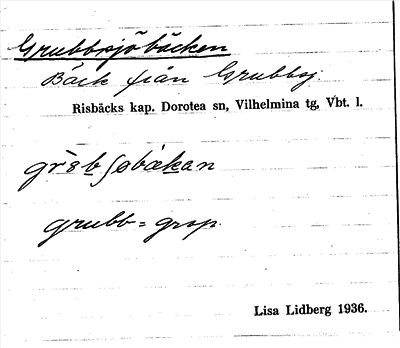 Grubbsjöbäcken
Bäck från Grubbsj.
Risbäcks kap. Dorotea sn, Vilhelmina tg, Vbt. l.
grubb = grop.
Lisa Lidberg 1936.